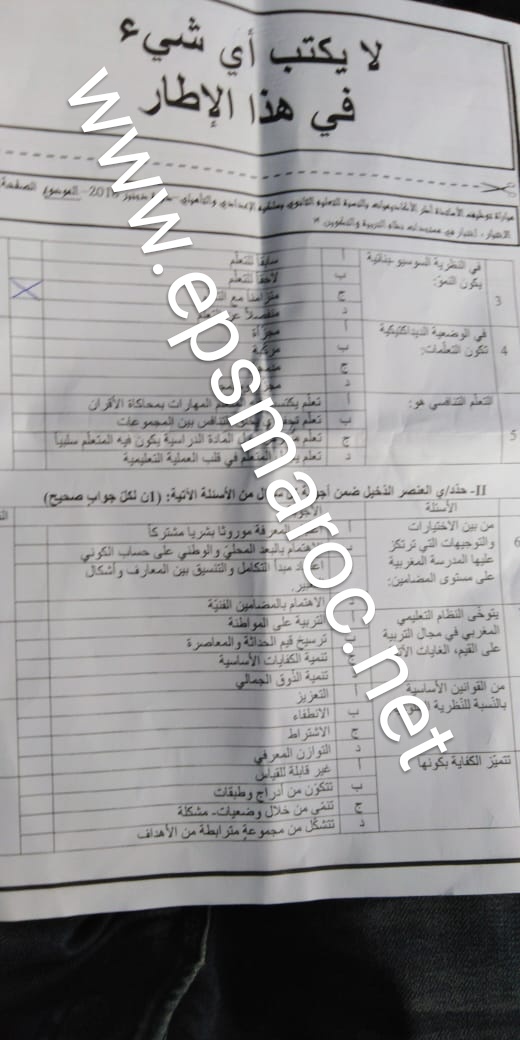 لا يكتب أي شيء
في هذا الإطار
www.epsmaroc.net
مباراة توظيف الأساتذة أطر الأكاديميات بالنسبة للتعليم الثانوي بسلكيه الإعدادي والتأهيلي 2018 - الموضوع الصفحة
الاختبار: اختبار في مستجدات نظام التربية والتكوين
3
في النظرية السوسيو-بنائية
يكون النمو:
أ سابقا للتعلم
ب لاحقا للتعلم
ج متزامنا مع
د منفصلا
4
في الوضعية الديداكتيكية
تكون التعلمات:
أ مجزأة
ب مركبة
ج
د
5
التعلم التنافسي هو:
أ تعلم المهارات بمحاكاة الأقران
ب تعلم بين المجموعات
ج تعلم المادة الدراسية يكون فيه المتعلم سلبيا
د تعلم المتعلم في قلب العملية التعليمية
II- حدد/ي العنصر الدخيل ضمن من الأسئلة الآتية: (1ن لكل جواب صحيح)
الأسئلة
6
من بين الاختيارات
والتوجهات التي ترتكز
عليها المدرسة المغربية
على مستوى المضامين:
المعرفة موروثا بشريا مشتركا
الاهتمام بالبعد المحلي والوطني على حساب الكوني
مبدأ التكامل والتنسيق بين المعارف وأشكال
الاهتمام بالمضامين الفنية
يتوخى النظام التعليمي
المغربي في مجال التربية
على القيم، الغايات
التربية على المواطنة
ترسيخ قيم الحداثة والمعاصرة
تنمية الكفايات الأساسية
تنمية الذوق الجمالي
من القوانين الأساسية
بالنسبة للنظرية
أ التعزيز
ب الانطفاء
ج الاشتراط
د التوازن المعرفي
تتميز الكفاية بكونها
أ غير قابلة للقياس
ب تتكون من أدراج وطبقات
ج تنمى من خلال وضعيات- مشكلة
د تتشكل من مجموعة مترابطة من الأهداف